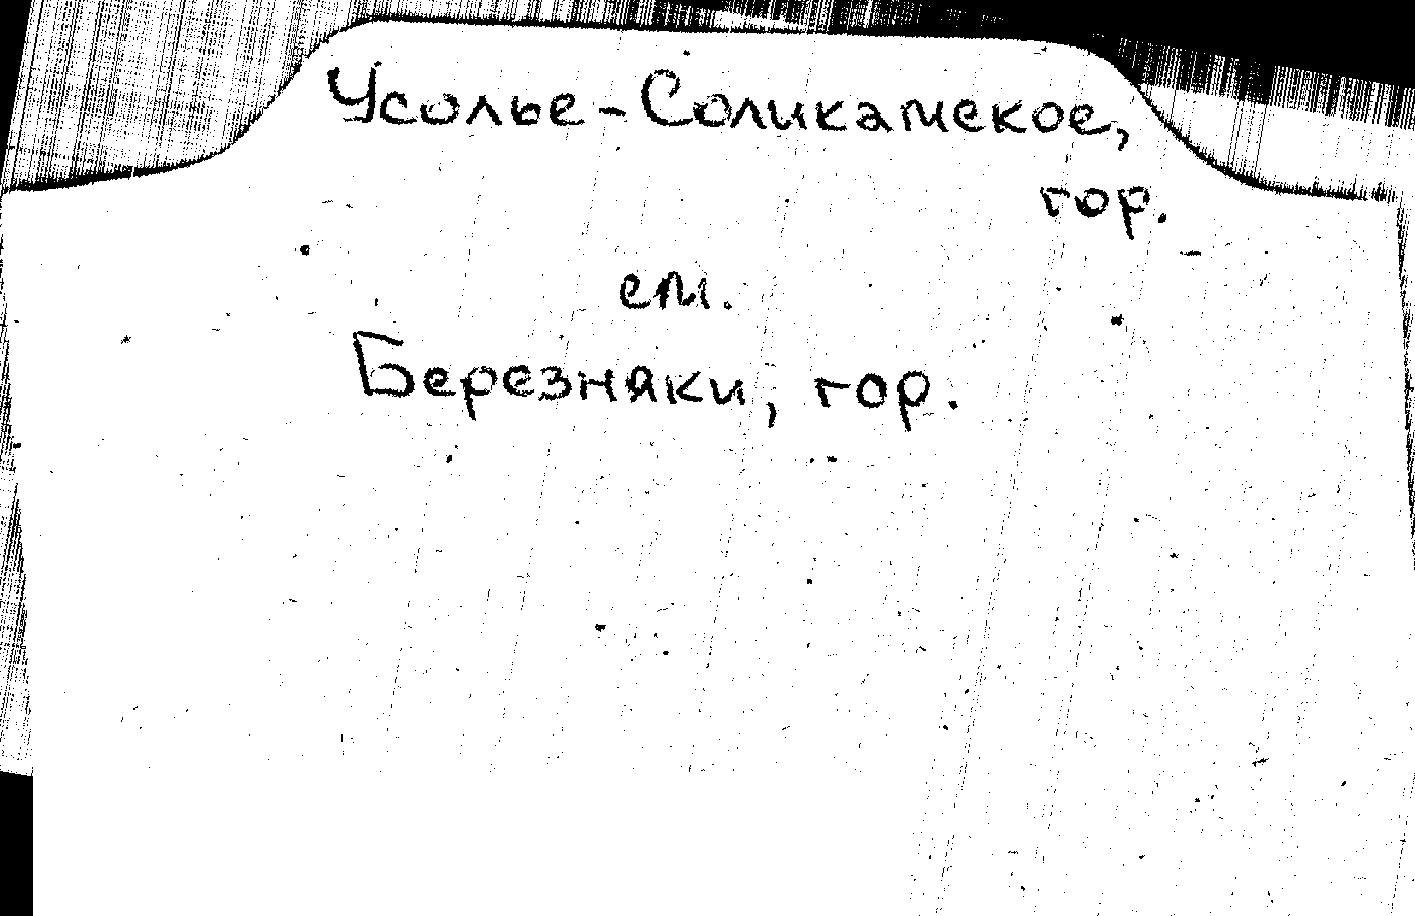 Усолье-Соликамское,
гор.
см.
Березняки, гор.